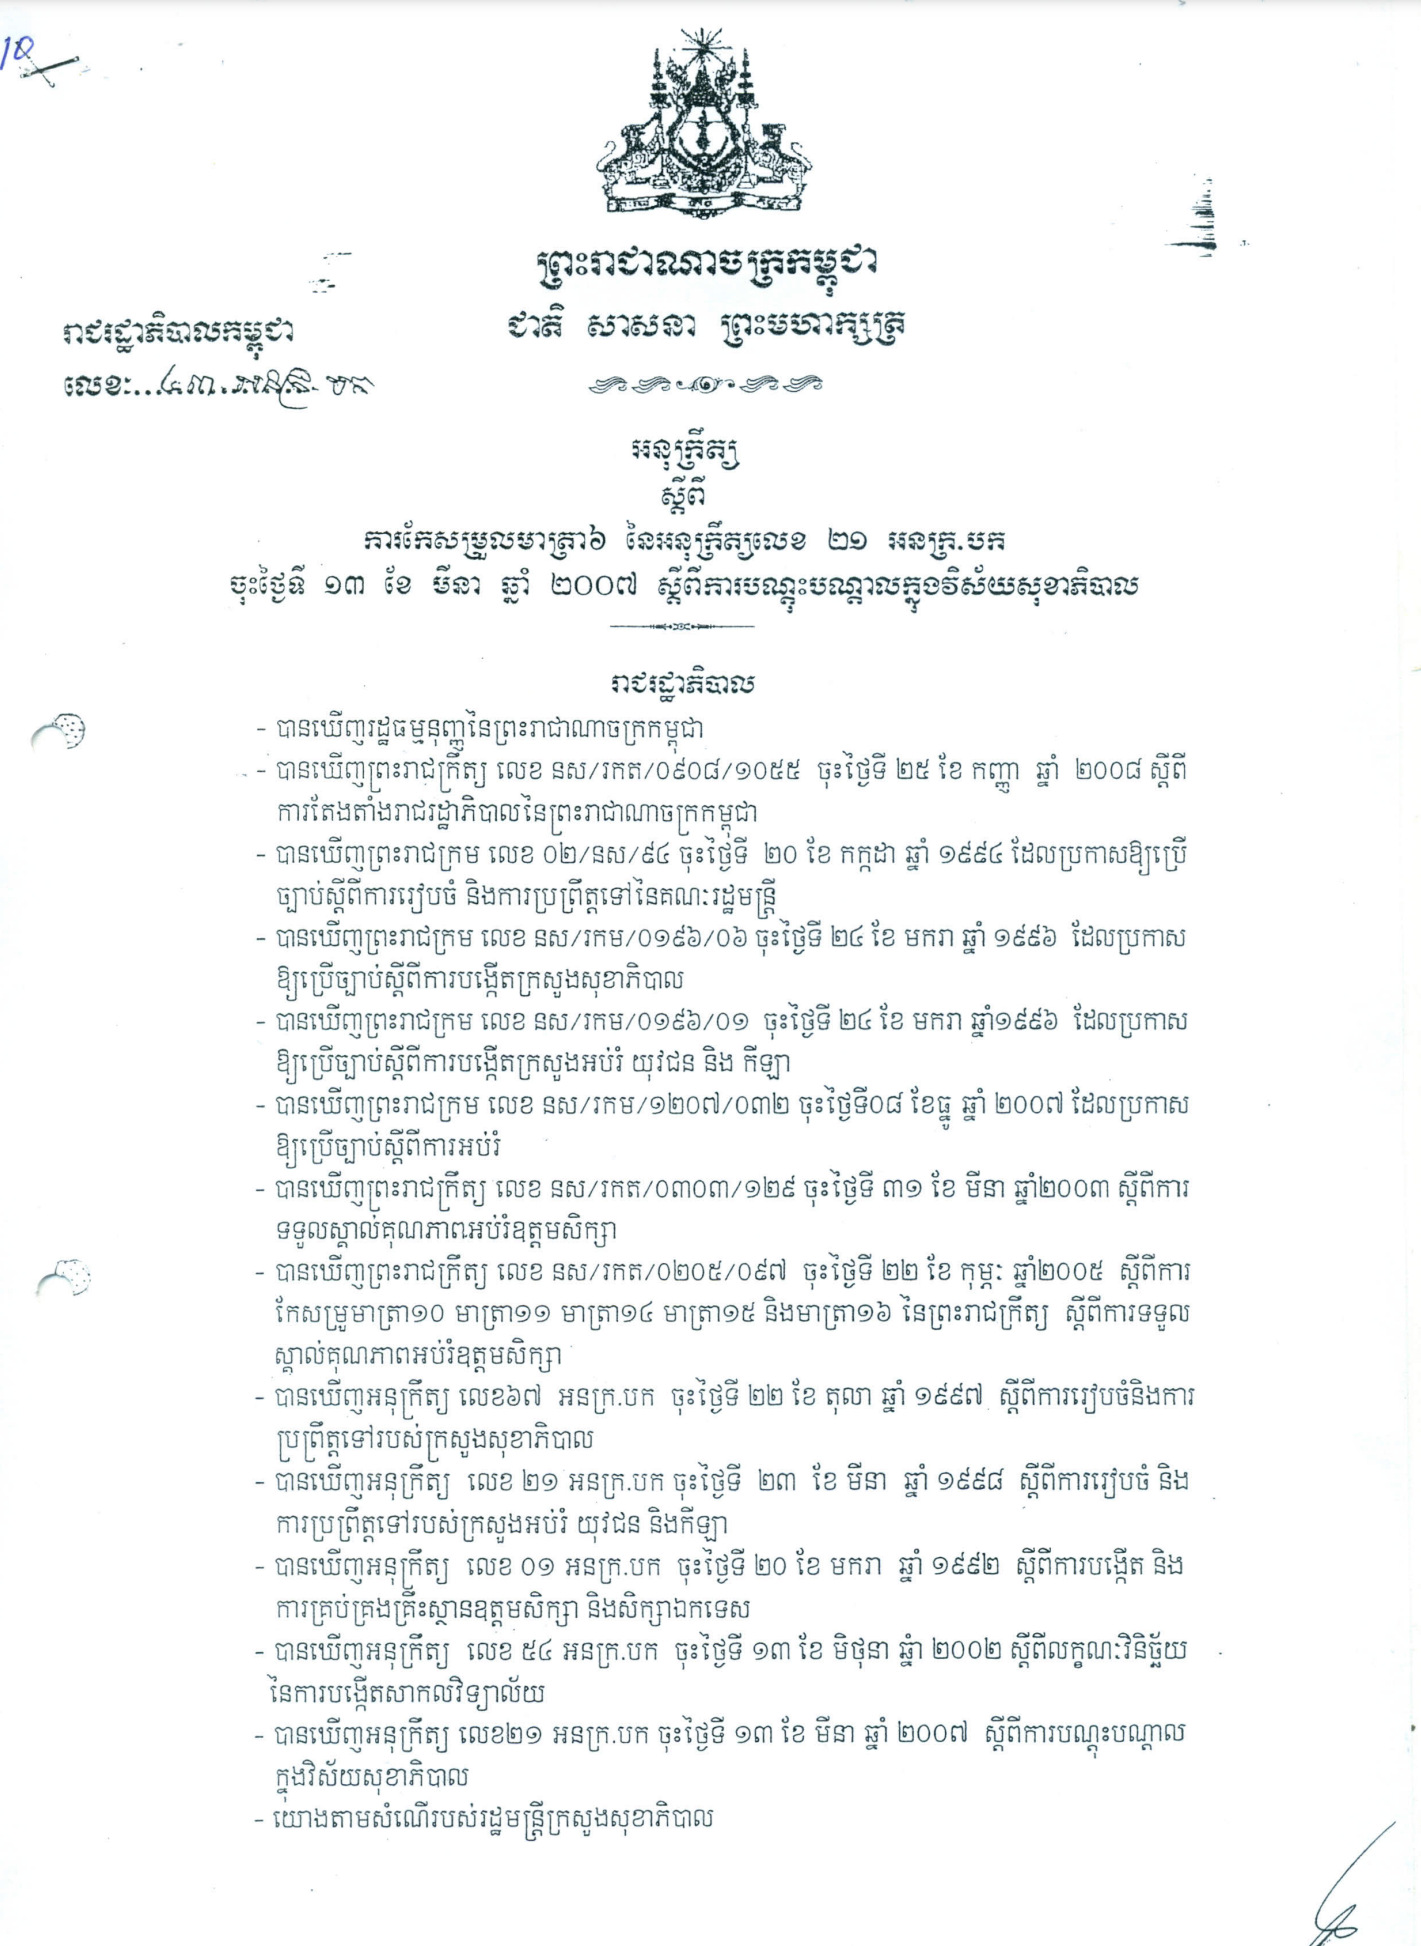 ព្រះរាជាណាចក្រកម្ពុជា
ជាតិ សាសនា ព្រះមហាក្សត្រ
រាជរដ្ឋាភិបាលកម្ពុជា
លេខៈ...៤៣.អនក្រ.បក
អនុក្រឹត្យ
ស្តីពី
ការកែសម្រួលមាត្រា៦ នៃអនុក្រឹត្យលេខ ២១ អនក្រ.បក
ចុះថ្ងៃទី ១៣ ខែ មីនា ឆ្នាំ ២០០៧ ស្តីពីការបណ្តុះបណ្តាលក្នុងវិស័យសុខាភិបាល
រាជរដ្ឋាភិបាល
- បានឃើញរដ្ឋធម្មនុញ្ញនៃព្រះរាជាណាចក្រកម្ពុជា
- បានឃើញព្រះរាជក្រឹត្យ លេខ នស/រកត/០៩០៨/១០៥៥ ចុះថ្ងៃទី ២៥ ខែ កញ្ញា ឆ្នាំ ២០០៨ ស្តីពី
ការតែងតាំងរាជរដ្ឋាភិបាលនៃព្រះរាជាណាចក្រកម្ពុជា
- បានឃើញព្រះរាជក្រម លេខ ០២/នស/៩៤ ចុះថ្ងៃទី ២០ ខែ កក្កដា ឆ្នាំ ១៩៩៤ ដែលប្រកាសឱ្យប្រើ
ច្បាប់ស្តីពីការរៀបចំ និងការប្រព្រឹត្តទៅនៃគណៈរដ្ឋមន្ត្រី
- បានឃើញព្រះរាជក្រម លេខ នស/រកម/០១៩៦/០៦ ចុះថ្ងៃទី ២៤ ខែ មករា ឆ្នាំ ១៩៩៦ ដែលប្រកាស
ឱ្យប្រើច្បាប់ស្តីពីការបង្កើតក្រសួងសុខាភិបាល
- បានឃើញព្រះរាជក្រម លេខ នស/រកម/០១៩៦/០១ ចុះថ្ងៃទី ២៤ ខែ មករា ឆ្នាំ១៩៩៦ ដែលប្រកាស
ឱ្យប្រើច្បាប់ស្តីពីការបង្កើតក្រសួងអប់រំ យុវជន និង កីឡា
- បានឃើញព្រះរាជក្រម លេខ នស/រកម/១២០៧/០៣២ ចុះថ្ងៃទី០៨ ខែធ្នូ ឆ្នាំ ២០០៧ ដែលប្រកាស
ឱ្យប្រើច្បាប់ស្តីពីការអប់រំ
- បានឃើញព្រះរាជក្រឹត្យ លេខ នស/រកត/០៣០៣/១២៩ ចុះថ្ងៃទី ៣១ ខែ មីនា ឆ្នាំ២០០៣ ស្តីពីការ
ទទួលស្គាល់គុណភាពអប់រំឧត្តមសិក្សា
- បានឃើញព្រះរាជក្រឹត្យ លេខ នស/រកត/០២០៥/០៩៧ ចុះថ្ងៃទី ២២ ខែ កុម្ភៈ ឆ្នាំ២០០៥ ស្តីពីការ
កែសម្រួមាត្រា១០ មាត្រា១១ មាត្រា១៤ មាត្រា១៥ និងមាត្រា១៦ នៃព្រះរាជក្រឹត្យ ស្តីពីការទទួល
ស្គាល់គុណភាពអប់រំឧត្តមសិក្សា
- បានឃើញអនុក្រឹត្យ លេខ៦៧ អនក្រ.បក ចុះថ្ងៃទី ២២ ខែ តុលា ឆ្នាំ ១៩៩៧ ស្តីពីការរៀបចំនិងការ
ប្រព្រឹត្តទៅរបស់ក្រសួងសុខាភិបាល
- បានឃើញអនុក្រឹត្យ លេខ ២១ អនក្រ.បក ចុះថ្ងៃទី ២៣ ខែ មីនា ឆ្នាំ ១៩៩៨ ស្តីពីការរៀបចំ និង
ការប្រព្រឹត្តទៅរបស់ក្រសួងអប់រំ យុវជន និងកីឡា
- បានឃើញអនុក្រឹត្យ លេខ ០១ អនក្រ.បក ចុះថ្ងៃទី ២០ ខែ មករា ឆ្នាំ ១៩៩២ ស្តីពីការបង្កើត និង
ការគ្រប់គ្រងគ្រឹះស្ថានឧត្តមសិក្សា និងសិក្សាឯកទេស
- បានឃើញអនុក្រឹត្យ លេខ ៥៤ អនក្រ.បក ចុះថ្ងៃទី ១៣ ខែ មិថុនា ឆ្នាំ ២០០២ ស្តីពីលក្ខណៈវិនិច្ឆ័យ
នៃការបង្កើតសាកលវិទ្យាល័យ
- បានឃើញអនុក្រឹត្យ លេខ២១ អនក្រ.បក ចុះថ្ងៃទី ១៣ ខែ មីនា ឆ្នាំ ២០០៧ ស្តីពីការបណ្តុះបណ្តាល
ក្នុងវិស័យសុខាភិបាល
- យោងតាមសំណើរបស់រដ្ឋមន្ត្រីក្រសួងសុខាភិបាល